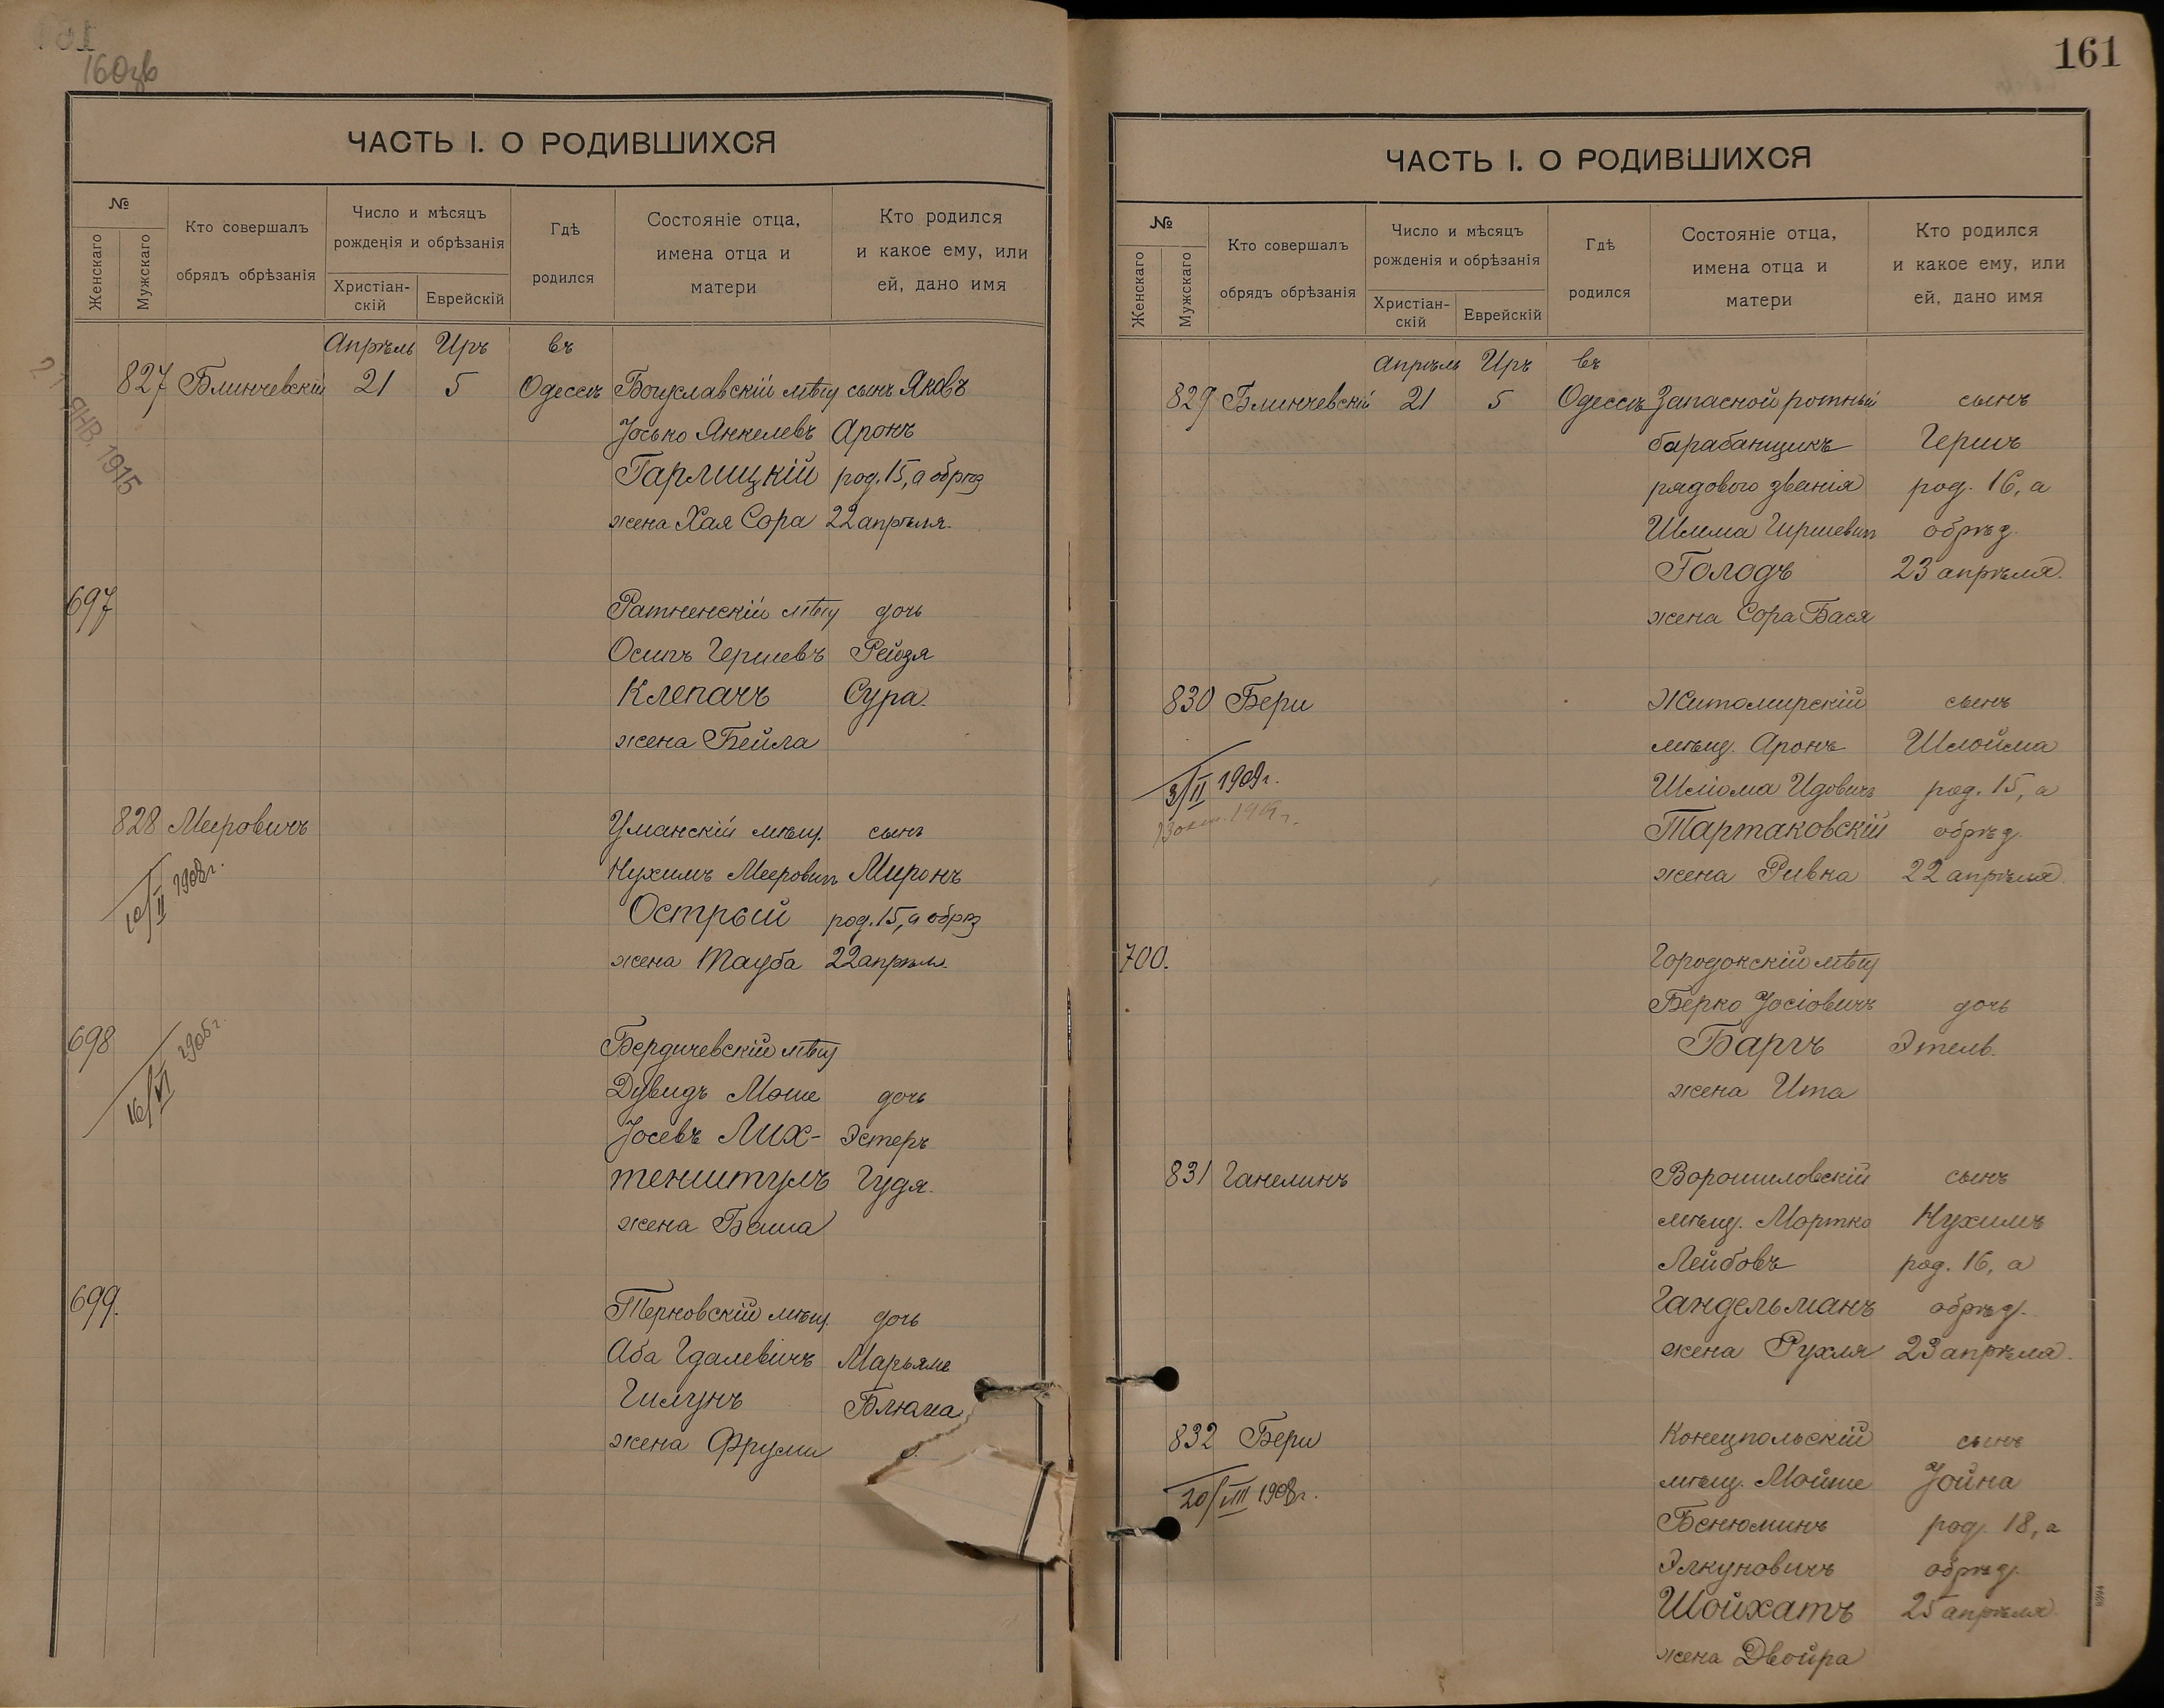 160зв
ЧАСТЬ I. О РОДИВШИХСЯ
№
Женскаго
Мужскаго
Кто совершалъ
обрядъ обрѣзанія
Число и мѣсяцъ
рожденія и обрѣзанія
Христіан-
скій
Еврейскій
Гдѣ
родился
Состояніе отца,
имена отца и
матери
Кто родился
и какое ему, или
ей, дано имя
Апрѣль Иръ въ
827 Блинчевскій 21 5 Одессѣ Богуславскій мѣщ сынъ Яковъ
Іосько Янкелевъ Аронъ
Гарлицкій род. 15, а обрѣз
жена Хая Сора 22 апрѣля.
ЯНВ. 1915
697 Ратненскій мѣщ дочь
Осипъ Гершевъ Рейзя
Клепачъ Сура.
жена Бейла
828 Мееровичъ Уманскій мѣщ. сынъ
Нухимъ Мееровичъ Миронъ
10/II 1908г.
Острый род. 15, а обрѣз
жена Тауба 22 апрѣл.
698 Бердичевскій мѣщ
16/VI 1905г.
Дувидъ Моше дочь
Іосевъ Лих- Эстеръ
тенштулъ Гудя.
жена Баша
699. Терновскій мѣщ. дочь
Аба Гдалевичъ Марьямъ
Гилунъ Блюма
жена Фруми
161
ЧАСТЬ I. О РОДИВШИХСЯ
№
Женскаго
Мужскаго
Кто совершалъ
обрядъ обрѣзанія
Число и мѣсяцъ
рожденія и обрѣзанія
Христіан-
скій
Еврейскій
Гдѣ
родился
Состояніе отца,
имена отца и
матери
Кто родился
и какое ему, или
ей, дано имя
Апрѣль Иръ въ
829 Блинчевскій 21 5 Одессѣ Запасной ротный сынъ
барабанщикъ Гершъ
рядового званія род. 16, а
Шлема Гершевич обрѣз.
Голодъ 23 апрѣля.
жена Сора Бася
830 Бери Житомирскій сынъ
мѣщ. Аронъ Шлойма
3/II 1909г.
Шліома Идовичъ род. 15, а
Тартаковскій обрѣз.
жена Ривка 22 апрѣля.
700. Городокскій мѣщ
Берко Іосіовичъ дочь
Баргъ Этель.
жена Ита
831 Ганелинъ Ворошиловскій сынъ
мѣщ. Мортко Нухимъ
Лейбовъ род. 16, а
Гандельманъ обрѣз.
жена Рухля 23 апрѣля.
832 Бери Конецпольскій сынъ
мѣщ. Мойше Іойна
20/VIII 1908г.
Бенюминъ род. 18, а
Элкуновичъ обрѣз.
Шойхатъ 25 апрѣля.
жена Двойра